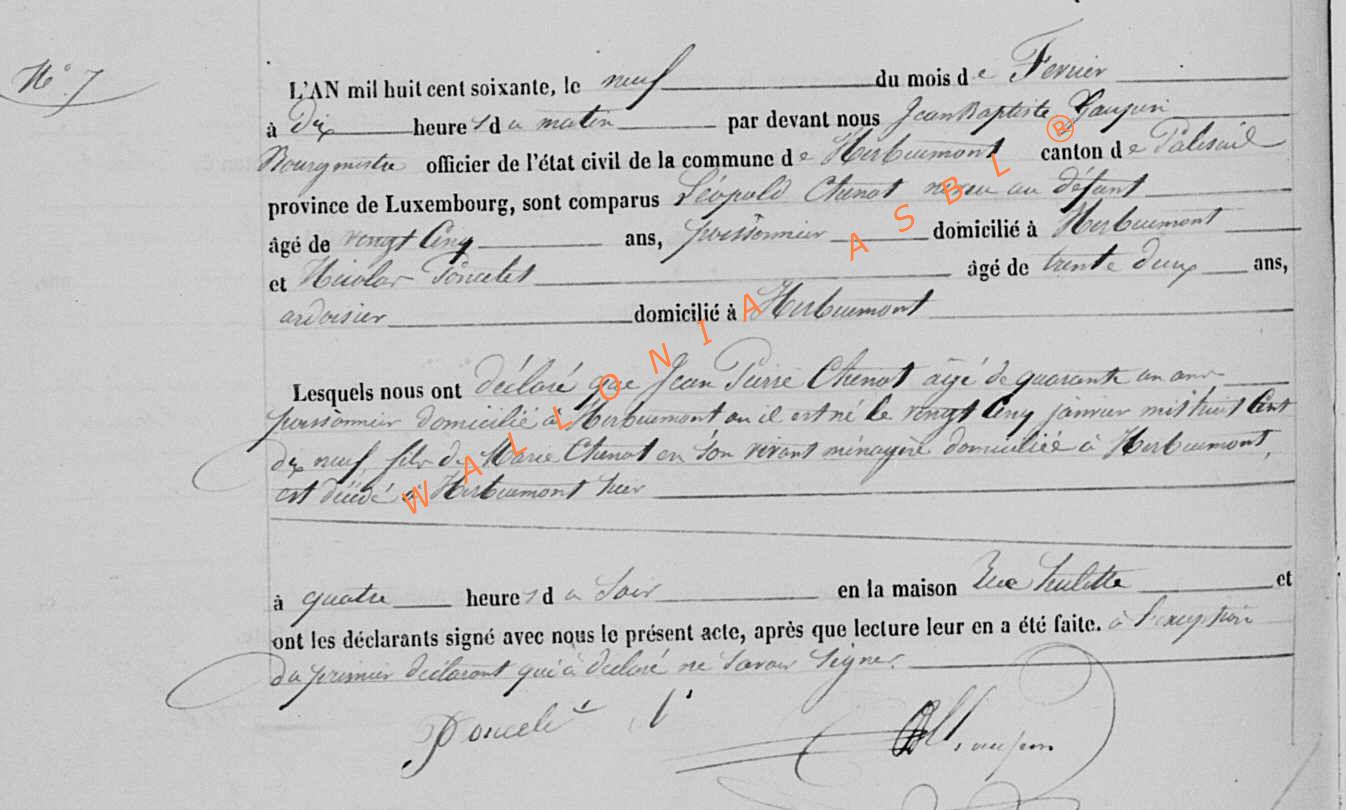 N° 7
L'AN mil huit cent soixante, le neuf du mois de Fevrier
à Dix heures du matin par devant nous Jean Baptiste
Bourgmestre officier de l'état civil de la commune de Herbeumont canton de Paliseul
province de Luxembourg, sont comparus Léopold Chenot neveu au défunt
âgé de vingt Cinq ans, poissonnier domicilié à Herbeumont
et Nicolas Poncelet âgé de trente deux ans,
ardoisier domicilié à Herbeumont
Lesquels nous ont déclaré que Jean Pierre Chenot âgé de quarante un ans
poissonnier domicilié à Herbeumont ou il est né le vingt Cinq janvier mil huit Cent
dix neuf, fils de Marie Chenot en son vivant ménagère domiciliée à Herbeumont,
est décédé à Herbeumont hier
à quatre heures du soir en la maison Rue et
ont les déclarants signé avec nous le présent acte, après que lecture leur en a été faite. à l'exception
du premier déclarant qui à déclaré ne savoir signer.
Poncelet
WALLONIA ASBL ®